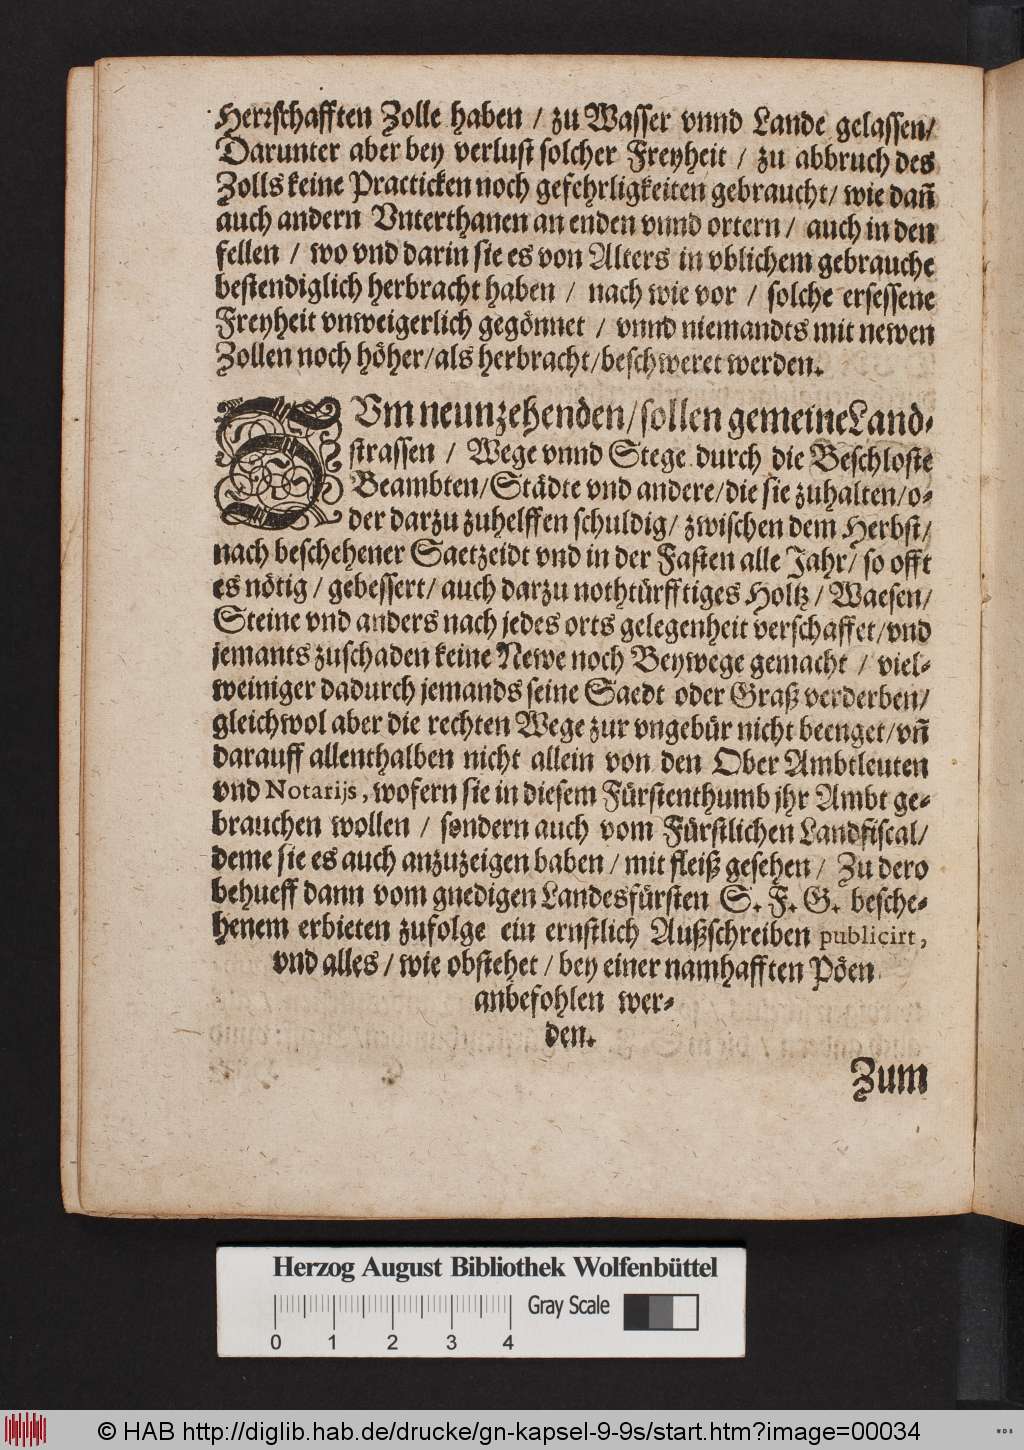 Herrschafften Zolle haben / zu Wasser vnnd Lande gelassen/
Darunter aber bey verlust solcher Freyheit / zu abbruch des
Zolls keine Practicken noch gefehrligkeiten gebraucht/ wie dañ
auch andern Vnterthanen an enden vnnd ortern / auch in den
fellen / wo vnd darin sie es von Alters in vblichem gebrauche
bestendiglich herbracht haben / nach wie vor / solche ersessene
Freyheit vnweigerlich gegönnet / vnnd niemandts mit newen
Zollen noch höher/als herbracht/beschweret werden.
ZVm neunzehenden/sollen gemeine Land-
strassen / Wege vnnd Stege durch die Beschloste
Beambten/Städte vnd andere/die sie zuhalten/o-
der darzu zuhelffen schuldig/ zwischen dem Herbst/
nach beschehener Saetzeidt vnd in der Fasten alle Jahr/ so offt
es nötig / gebessert/ auch darzu nothtürfftiges Holtz / Waesen/
Steine vnd anders nach jedes orts gelegenheit verschaffet/vnd
jemants zuschaden keine Newe noch Beywege gemacht / viel-
weiniger dadurch jemands seine Saedt oder Graß verderben/
gleichwol aber die rechten Wege zur vngebür nicht beenget/vñ
darauff allenthalben nicht allein von den Ober Ambtleuten
vnd Notarijs, wofern sie in diesem Fürstenthumb jhr Ambt ge-
brauchen wollen / sondern auch vom Fürstlichen Landfiscal/
deme sie es auch anzuzeigen baben / mit fleiß gesehen / Zu dero
behueff dann vom gnedigen Landesfürsten S. F. G. besche-
henem erbieten zufolge ein ernstlich Außschreiben publicirt,
vnd alles / wie obstehet / bey einer namhafften Pöen
anbefohlen wer-
den.
Zum
Herzog August Bibliothek Wolfenbüttel
Gray Scale
0 1 2 3 4
© HAB http://diglib.hab.de/drucke/gn-kapsel-9-9s/start.htm?image=00034